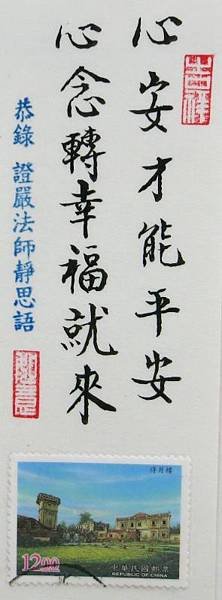 心安才能平安
心念轉幸福就來
恭錄 證嚴法師靜思語
吉祥
12.00
中華民國郵票
REPUBLIC OF CHINA